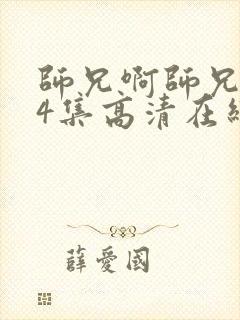 師兄啊師兄
4集高清在線
薛愛國